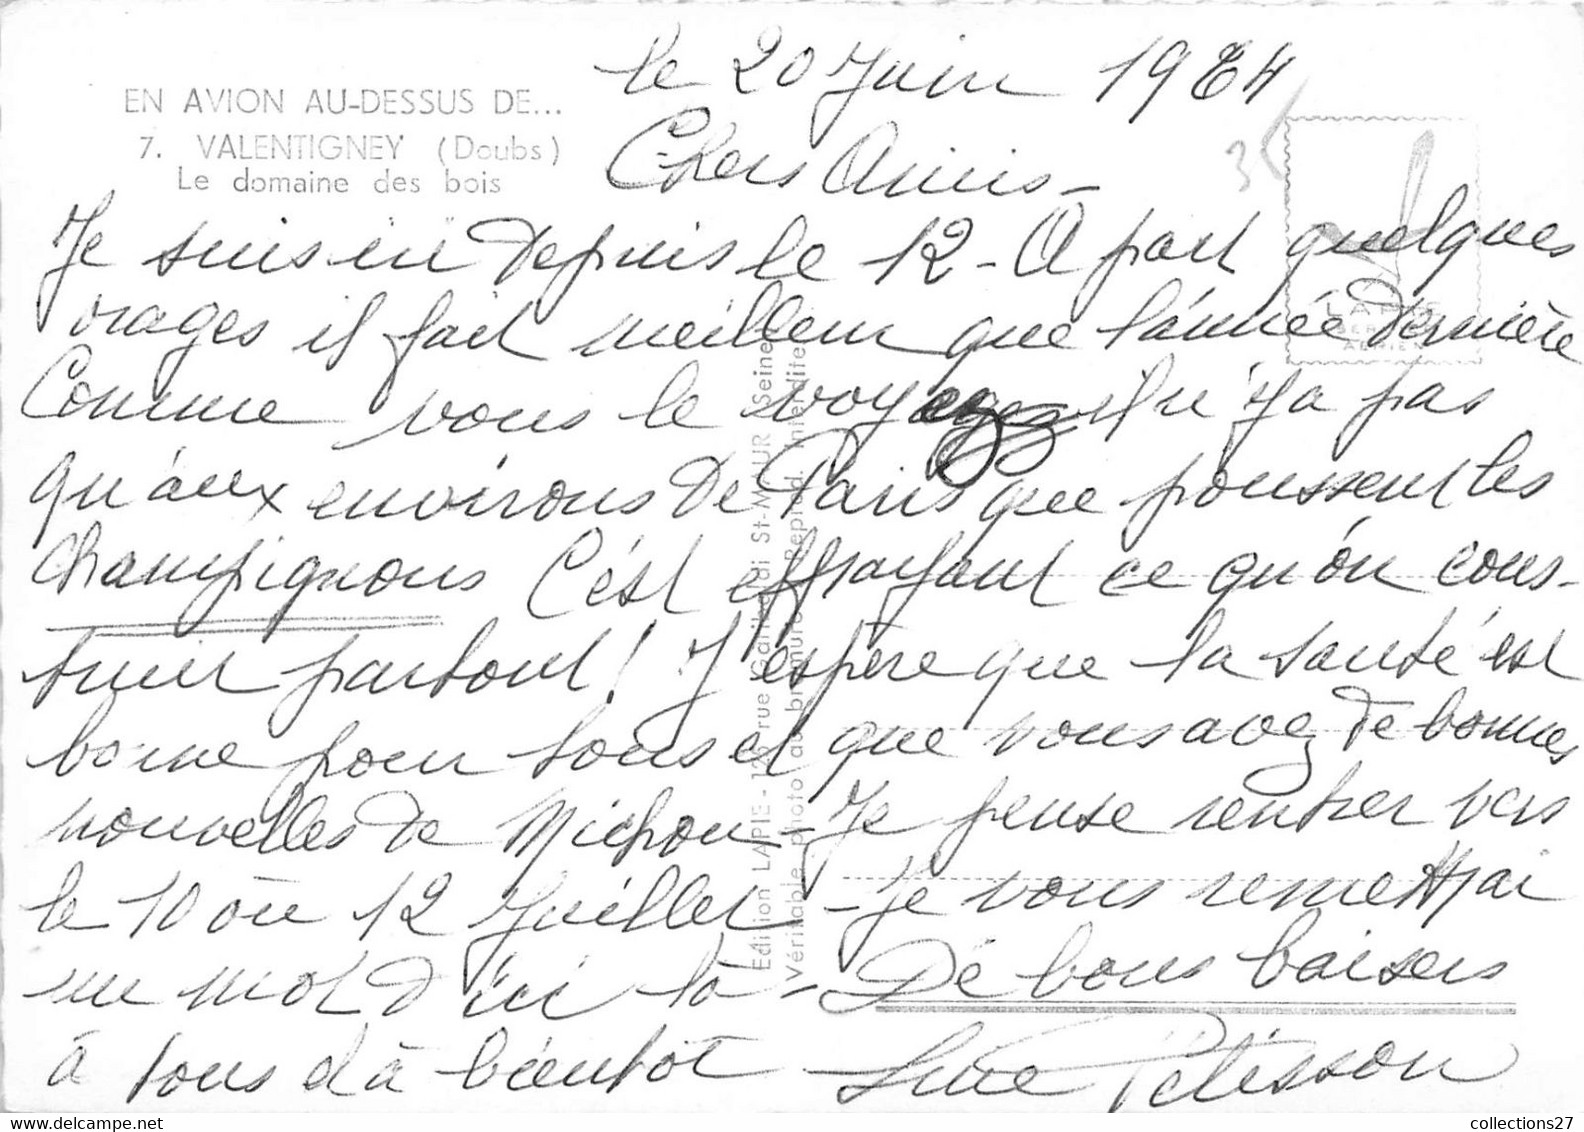 EN AVION AU-DESSUS DE...
7. VALENTIGNEY (Doubs)
Le domaine des bois
le 20 Juin 1964
Chers Amis -
Je suis ici depuis le 12 - A part quelques
orages il fait meilleur que l'année dernière
Comme vous le voyez il n'y a pas
qu'aux environs de Paris que poussent les
champignons C'est effrayant ce qu'on cons-
truit partout! J'espère que la santé est
bonne pour tous et que vous avez de bonnes
nouvelles de Michou - Je pense rentrer vers
le 10 ou 12 Juillet - Je vous remettrai
un mot d'ici là - De bons baisers
à tous et à bientôt
Pelisson
Edition LAPIE - rue St-MAUR (Seine)
Véritable photo au bromure - Reprod. Interdite
LAPIE
collections27